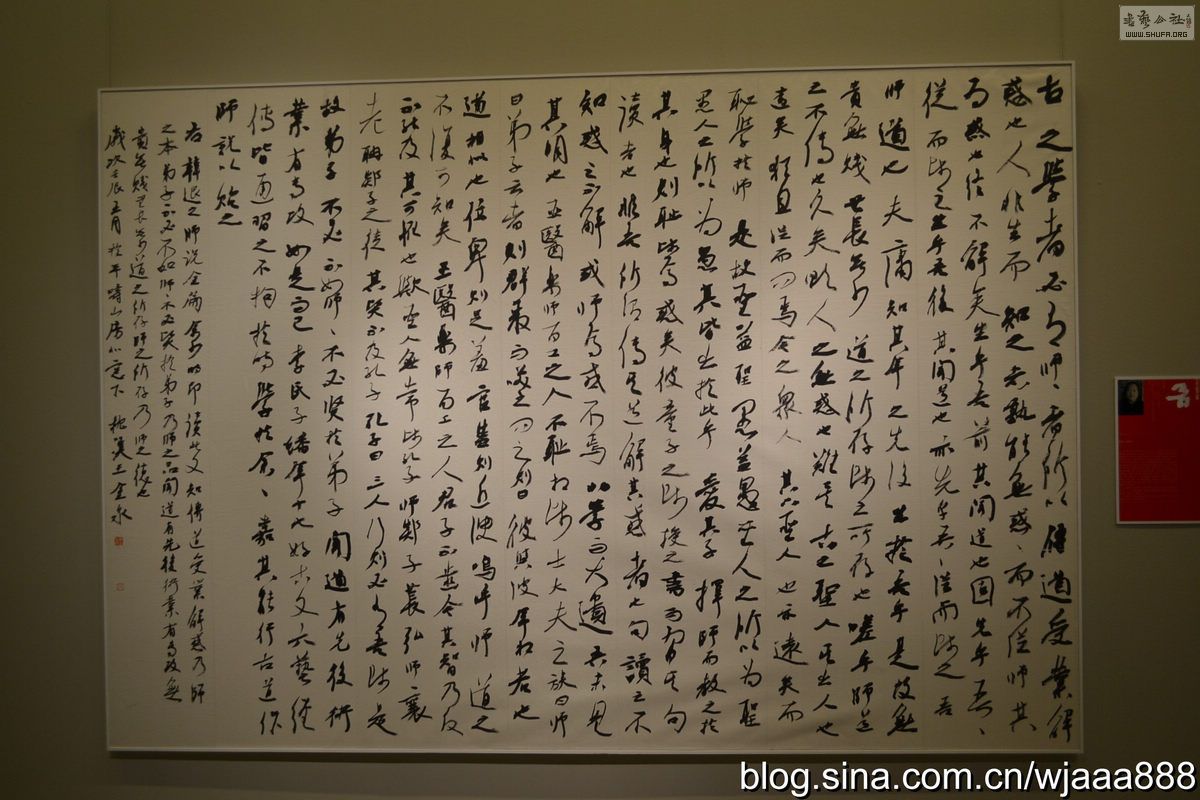 古之學者必有師、者所以傳道受業解
惑也人非生而知之者孰能無惑、而不從師其
為惑也終不解矣生乎吾前其聞道也固先乎吾、
從而師之生乎吾後其聞道也亦先乎吾、從而師之吾
師道也夫庸知其年之先後生於吾乎是故無
貴無賤無長無少道之所存師之所存也嗟乎師道
之不傳也久矣欲人之無惑也難矣古之聖人其出人也
遠矣猶且從師而問焉今之眾人其下聖人也亦遠矣而
恥學於師是故聖益聖愚益愚聖人之所以為聖
愚人之所以為愚其皆出於此乎愛其子擇師而教之於
其身也則恥師焉惑矣彼童子之師授之書而習其句
讀者也非吾所謂傳其道解其惑者也句讀之不
知惑之不解或師焉或不焉小學而大遺吾未見
其明也巫醫樂師百工之人不恥相師士大夫之族曰師
曰弟子云者則群聚而笑之問之則曰彼與彼年相若也
道相似也位卑則足羞官盛則近諛嗚呼師道之
不復可知矣巫醫樂師百工之人君子不齒今其智乃反
不能及其可怪也歟聖人無常師孔子師郯子萇弘師襄
老聃郯子之徒其賢不及孔子孔子曰三人行則必有吾師是
故弟子不必不如師、不必賢於弟子聞道有先後術
業有專攻如是而已李氏子蟠年十七好古文六藝經
傳皆通習之不拘於時學於余、嘉其能行古道作
師說以貽之
右韓退之師說全篇余少時即讀此文知傳道受業解惑乃師
之本弟子不必不如師師不必賢於弟子乃師之品聞道有先後術業有專攻無
貴無賤無長無少道之所存師之所存乃師之德也
歲次壬辰五月於 山房 下 王金泉
WWW.SHUFA.ORG
blog.sina.com.cn/wjaaa888